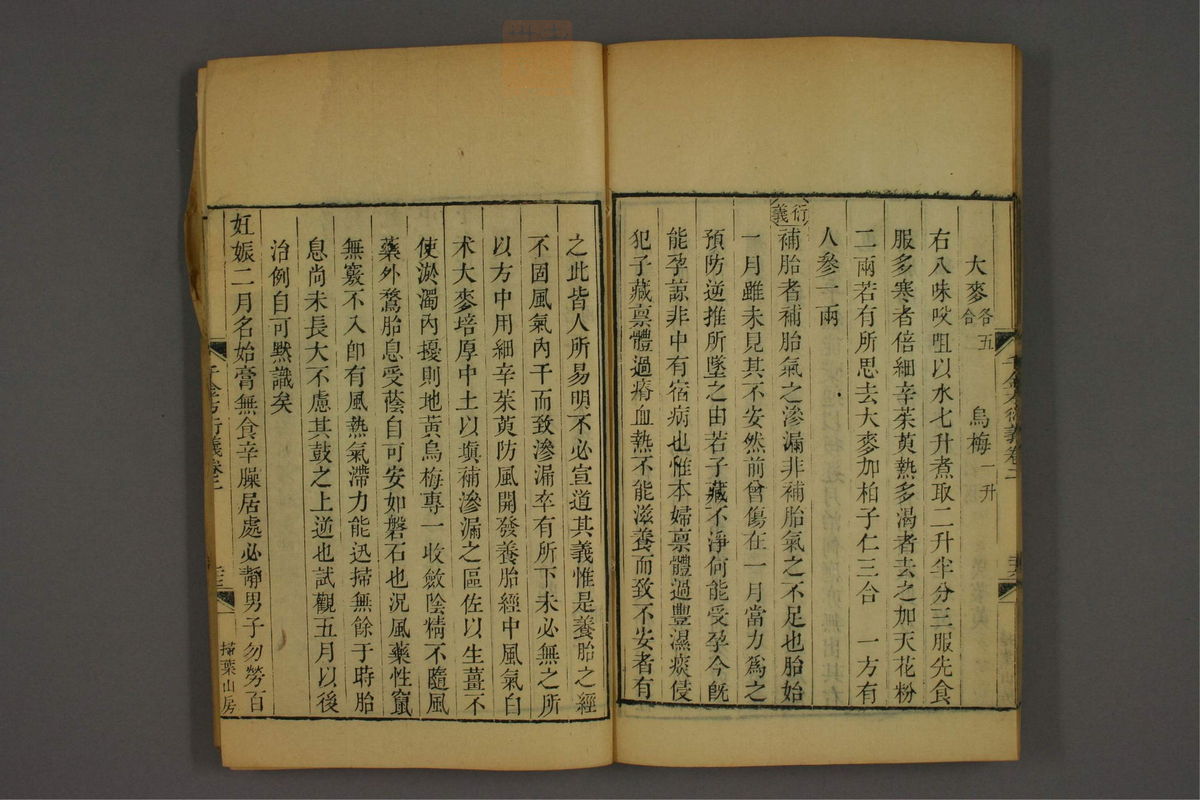 大麥五合各 烏梅一升
右八味㕮咀以水七升煮取二升半分三服先食
服多寒者倍細辛茱萸熱多渴者去之加天花粉
二兩若有所思去大麥加柏子仁三合 一方有
人參一兩
衍義
補胎者補胎氣之滲漏非補胎氣之不足也胎始
一月雖未見其不安然前曾傷在一月當力為之
預防逆推所墜之由若子藏不淨何能受孕今旣
能孕諒非中有宿病也惟本婦禀體過豐濕痰侵
犯子藏禀體過瘠血熱不能滋養而致不安者有
之此皆人所易明不必宣道其義惟是養胎之經
不固風氣內干而致滲漏卒有所下未必無之所
以方中用細辛茱萸防風開發養胎經中風氣白
术大麥培厚中土以塡補滲漏之區佐以生薑不
使淤濁內擾則地黃烏梅專一收斂陰精不隨風
藥外鶩胎息受蔭自可安如磐石也況風藥性竄
無竅不入卽有風熱氣滯力能迅掃無餘于時胎
息尚未長大不慮其鼓之上逆也試觀五月以後
治例自可默識矣
妊娠二月名始膏無食辛臊居處必靜男子勿勞百
千金方衍義卷二
掃葉山房